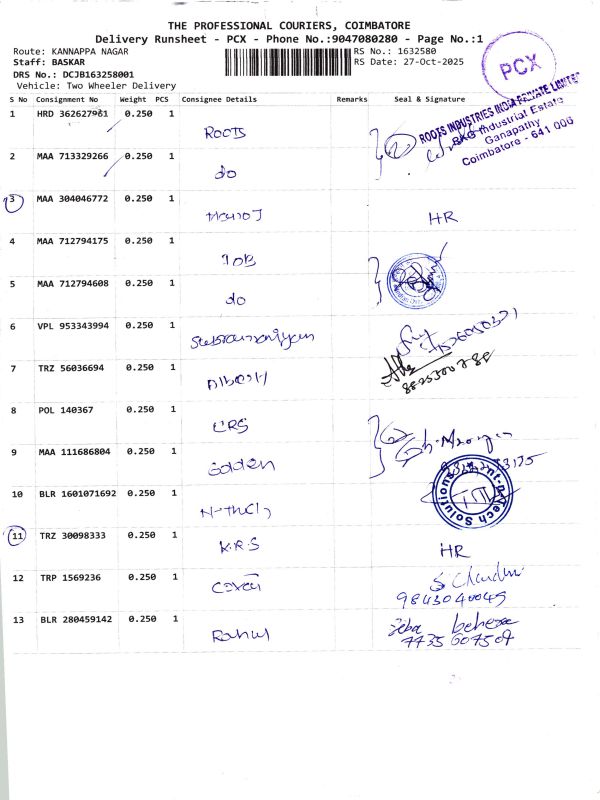 THE PROFESSIONAL COURIERS, COIMBATORE
Delivery Runsheet - PCX - Phone No.:9047080280 - Page No.:1
Route: KANNAPPA NAGAR
RS No.: 1632580
Staff: BASKAR
RS Date: 27-Oct-2025
DRS No.: DCJB163258001
Vehicle: Two Wheeler Delivery
PCX
S No Consignment No Weight PCS Consignee Details Remarks Seal & Signature
ROOTS INDUSTRIES INDIA PRIVATE LIMITED
RKG Industrial Estate
Ganapathy
Coimbatore - 641 006
1 HRD 362627961 0.250 1 ROOTS
2 MAA 713329266 0.250 1 do
3 MAA 304046772 0.250 1 HR
4 MAA 712794175 0.250 1 IOB
5 MAA 712794608 0.250 1 do
6 VPL 953343994 0.250 1 Subramaniyam
7 TRZ 56036694 0.250 1 Albert
8 POL 140367 0.250 1 CRS
9 MAA 111686804 0.250 1 Golden
10 BLR 1601071692 0.250 1
Tech Solutions
11 TRZ 30098333 0.250 1 K.R.S HR
12 TRP 1569236 0.250 1
9843040049
13 BLR 280459142 0.250 1 Rahul Jeba behera
7735607507